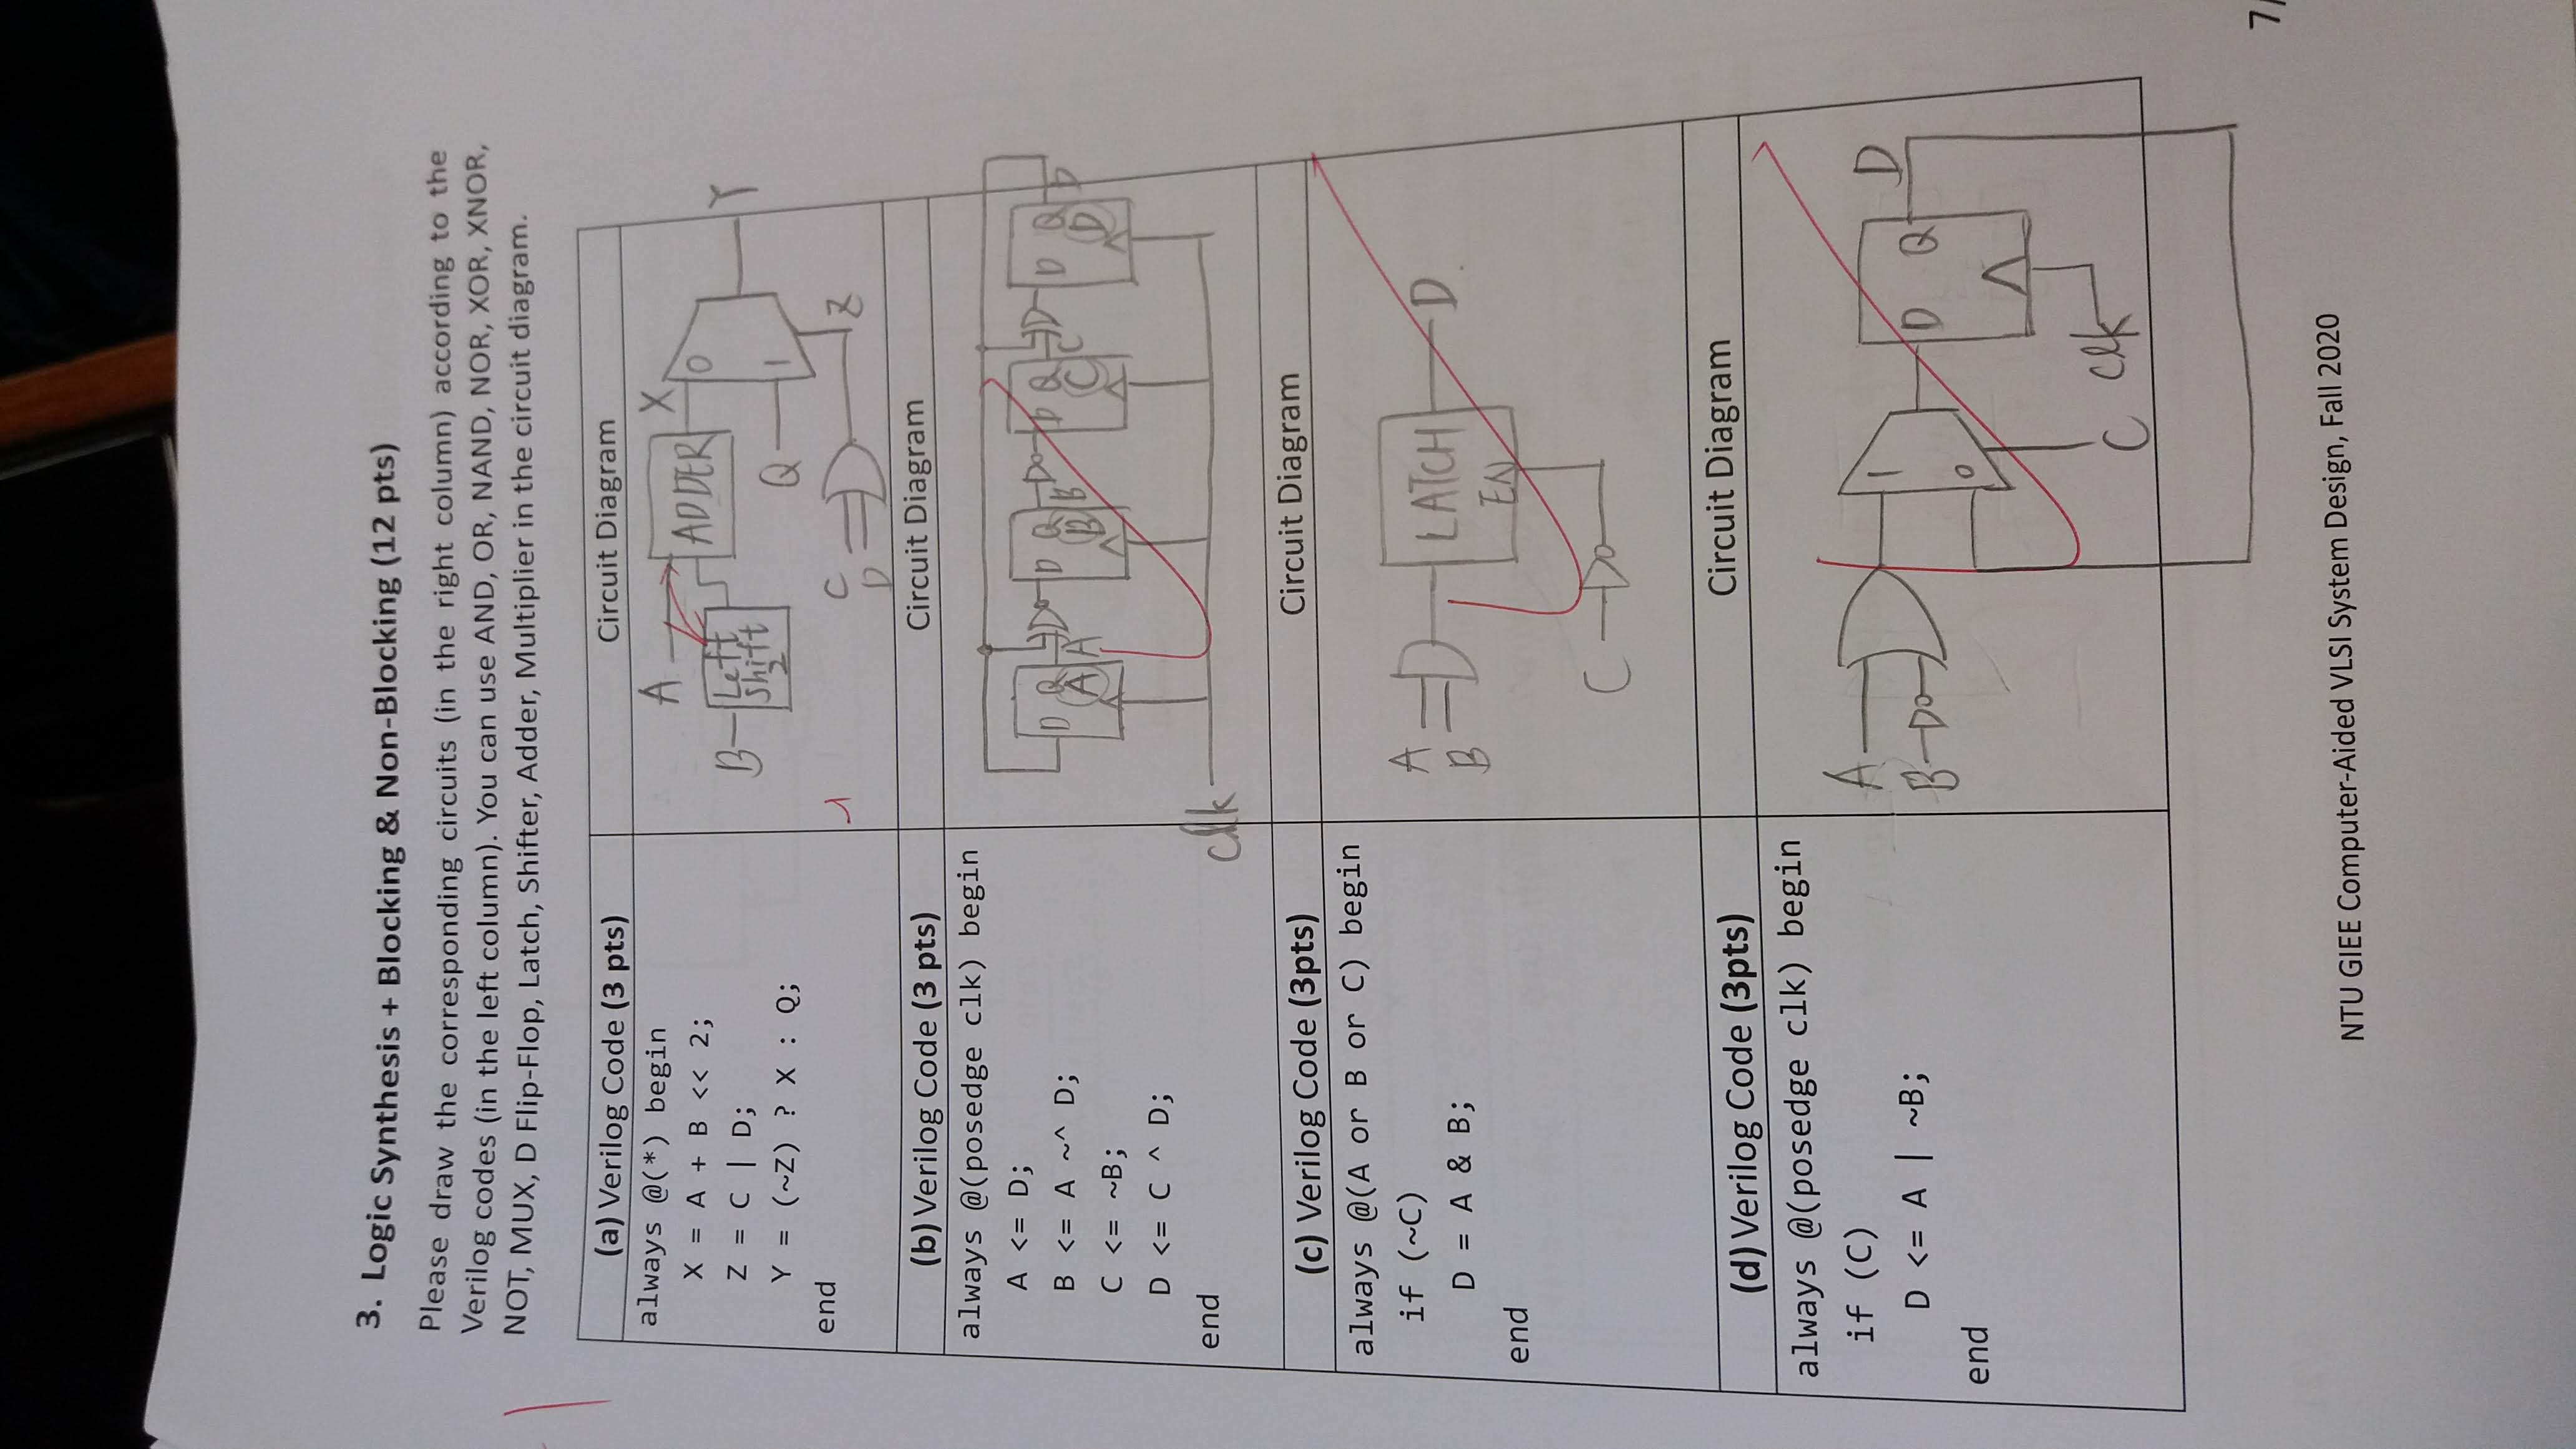 3. Logic Synthesis + Blocking & Non-Blocking (12 pts)
Please draw the corresponding circuits (in the right column) according to the
Verilog codes (in the left column). You can use AND, OR, NAND, NOR, XOR, XNOR,
NOT, MUX, D Flip-Flop, Latch, Shifter, Adder, Multiplier in the circuit diagram.
-1
(a) Verilog Code (3 pts)
Circuit Diagram
always @(*) begin
X = A + B << 2;
Z = C | D;
Y = (~Z) ? X : Q;
end
A
ADDER
X
B
Left
Shift
2
0
1
Y
Q
C
D
Z
-1
(b) Verilog Code (3 pts)
Circuit Diagram
always @(posedge clk) begin
A <= D;
B <= A ~^ D;
C <= ~B;
D <= C ^ D;
end
D Q
A
A
D Q
B
B
D Q
C
C
D Q
D
D
clk
(c) Verilog Code (3pts)
Circuit Diagram
always @(A or B or C) begin
if (~C)
D = A & B;
end
A
B
LATCH
EN
D
C
(d) Verilog Code (3pts)
Circuit Diagram
always @(posedge clk) begin
if (C)
D <= A | ~B;
end
A
B
1
0
D Q
D
C
clk
7/
NTU GIEE Computer-Aided VLSI System Design, Fall 2020